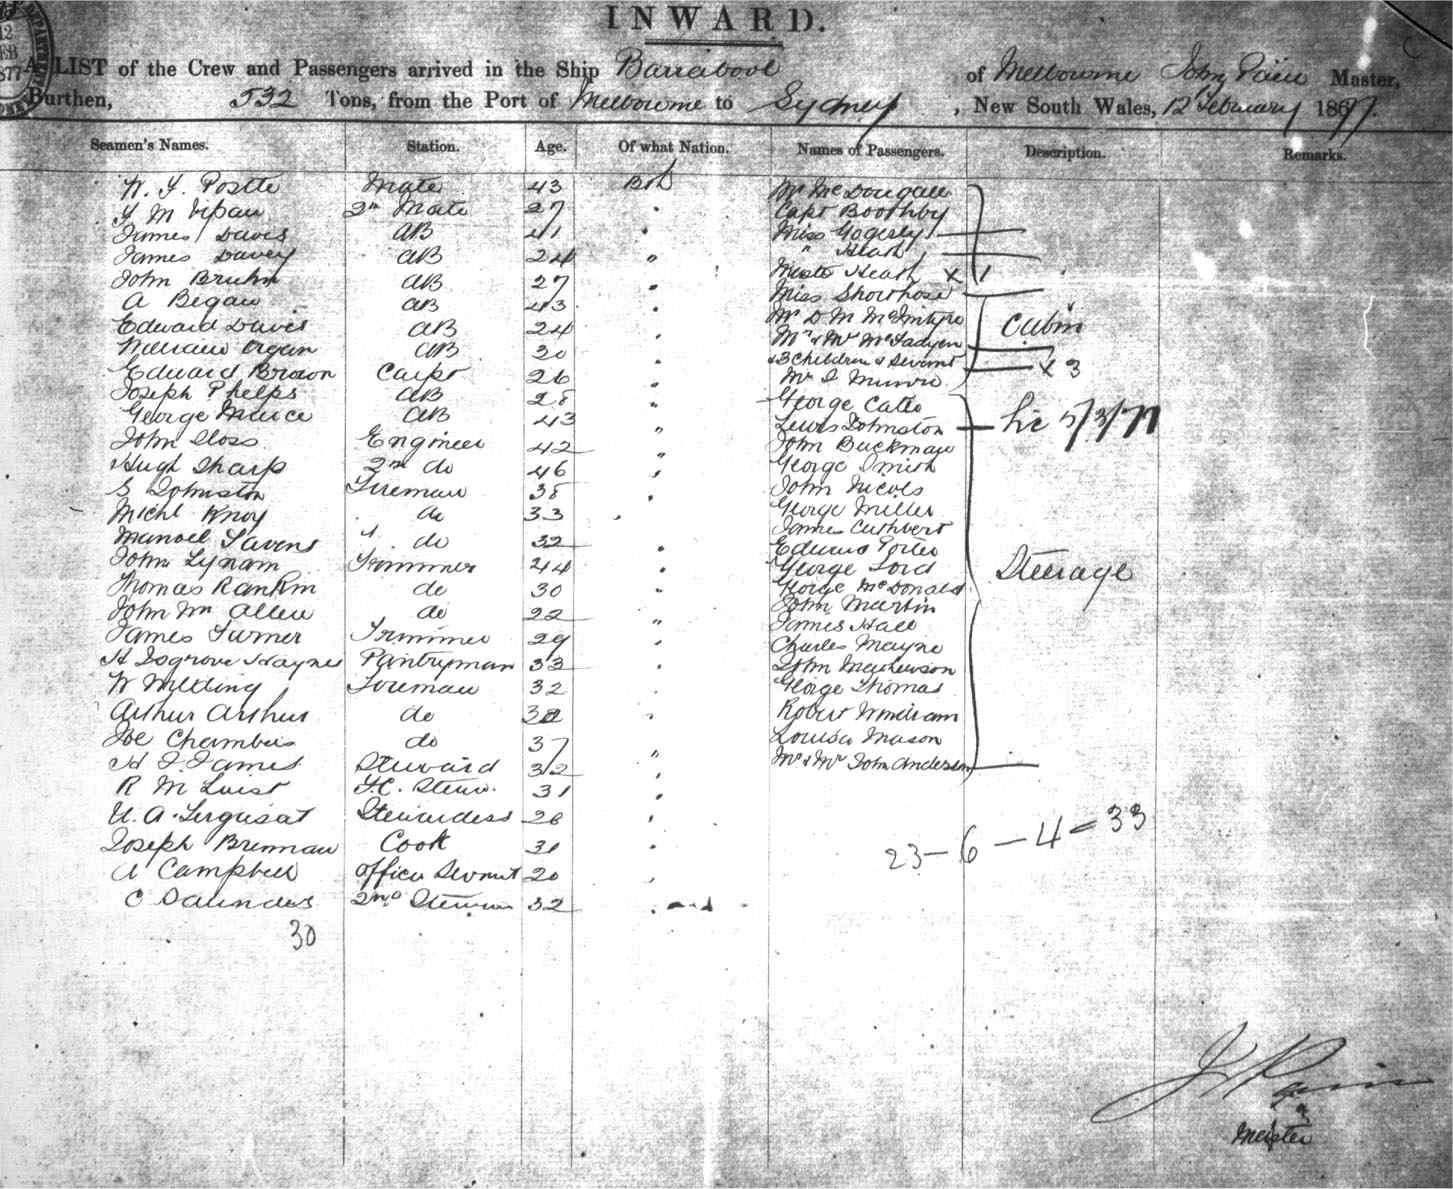 12
FEB
1877
INWARD.
A LIST of the Crew and Passengers arrived in the Ship Barrabool of Melbourne John Master,
Burthen, 532 Tons, from the Port of Melbourne to Sydney, New South Wales, 12 February 1877.
Seamen's Names. Station. Age. Of what Nation. Names of Passengers. Description. Remarks.
Mate 43 Mr McDougall
2nd Mate 27 " Capt Boothby
James Davis AB 41 " Miss
James Davey AB 24 " " Heath
John Bruhn AB 27 " Heath x 1
A Began AB 43 " Miss Shorthose
Edward Davis AB 24 " Mr D M McIntyre Cabin
William Organ AB 30 " Mr & Mrs McFadyen
Edward Brown Carpt 26 " & 3 children & Servant x 3
Joseph Phelps AB 28 " Mr Munro
George AB 43 " George
John Sloss Engineer 42 " Lewis Johnston
Hugh Sharp 2nd do 46 " John Buckman
S Johnston Fireman 38 " George Smith
Michl Knoy do 33 " John Nicols
Manoel do 32 " George Miller
John Lynam Trimmer 44 " James Cuthbert
Thomas Rankin do 30 " Edward Porter
John Mc Allen do 22 " George Lord Steerage
James Turner Trimmer 29 " George McDonald
H Isgrove Haynes Pantryman 33 " John Martin
W Wilding Foreman 32 " James Hall
Arthur Arthur do " Charles Mayne
Joe Chambers do 37 " John Mathewson
H J James Steward 32 " George Thomas
R M 31 " Robert Windram
Stewardess 26 " Louisa Mason
Joseph Brennan Cook 31 " Mr & Mrs John Anderson
A Campbell officer Servant 20 "
C Saunders 2nd 32 "
23 - 6 - 4 = 33
30